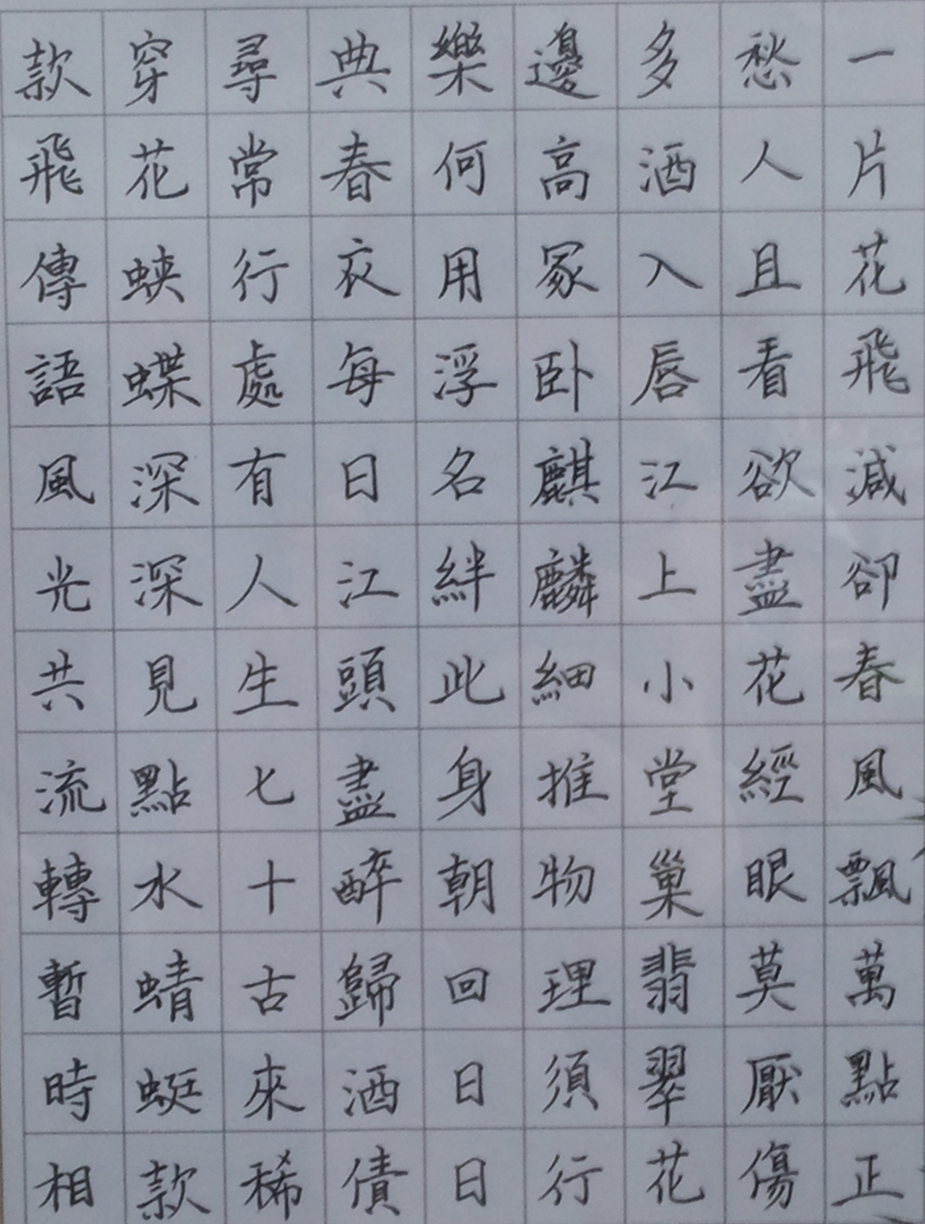 一片花飛減卻春風飄萬點正
愁人且看欲盡花經眼莫厭傷
多酒入唇江上小堂巢翡翠花
邊高冢卧麒麟細推物理須行
樂何用浮名絆此身朝回日日
典春衣每日江頭盡醉歸酒債
尋常行處有人生七十古來稀
穿花蛺蝶深深見點水蜻蜓款
款飛傳語風光共流轉暫時相